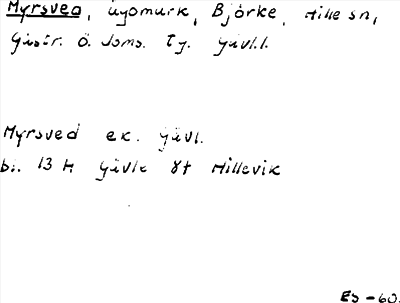 Myrsved, ägomark, Björke, Hille sn,
Gästr. ö. doms. Tg. Gävl.l.
Myrsved ek. Gävl.
bl. 13 H Gävle 8f Hillevik
ES -60.